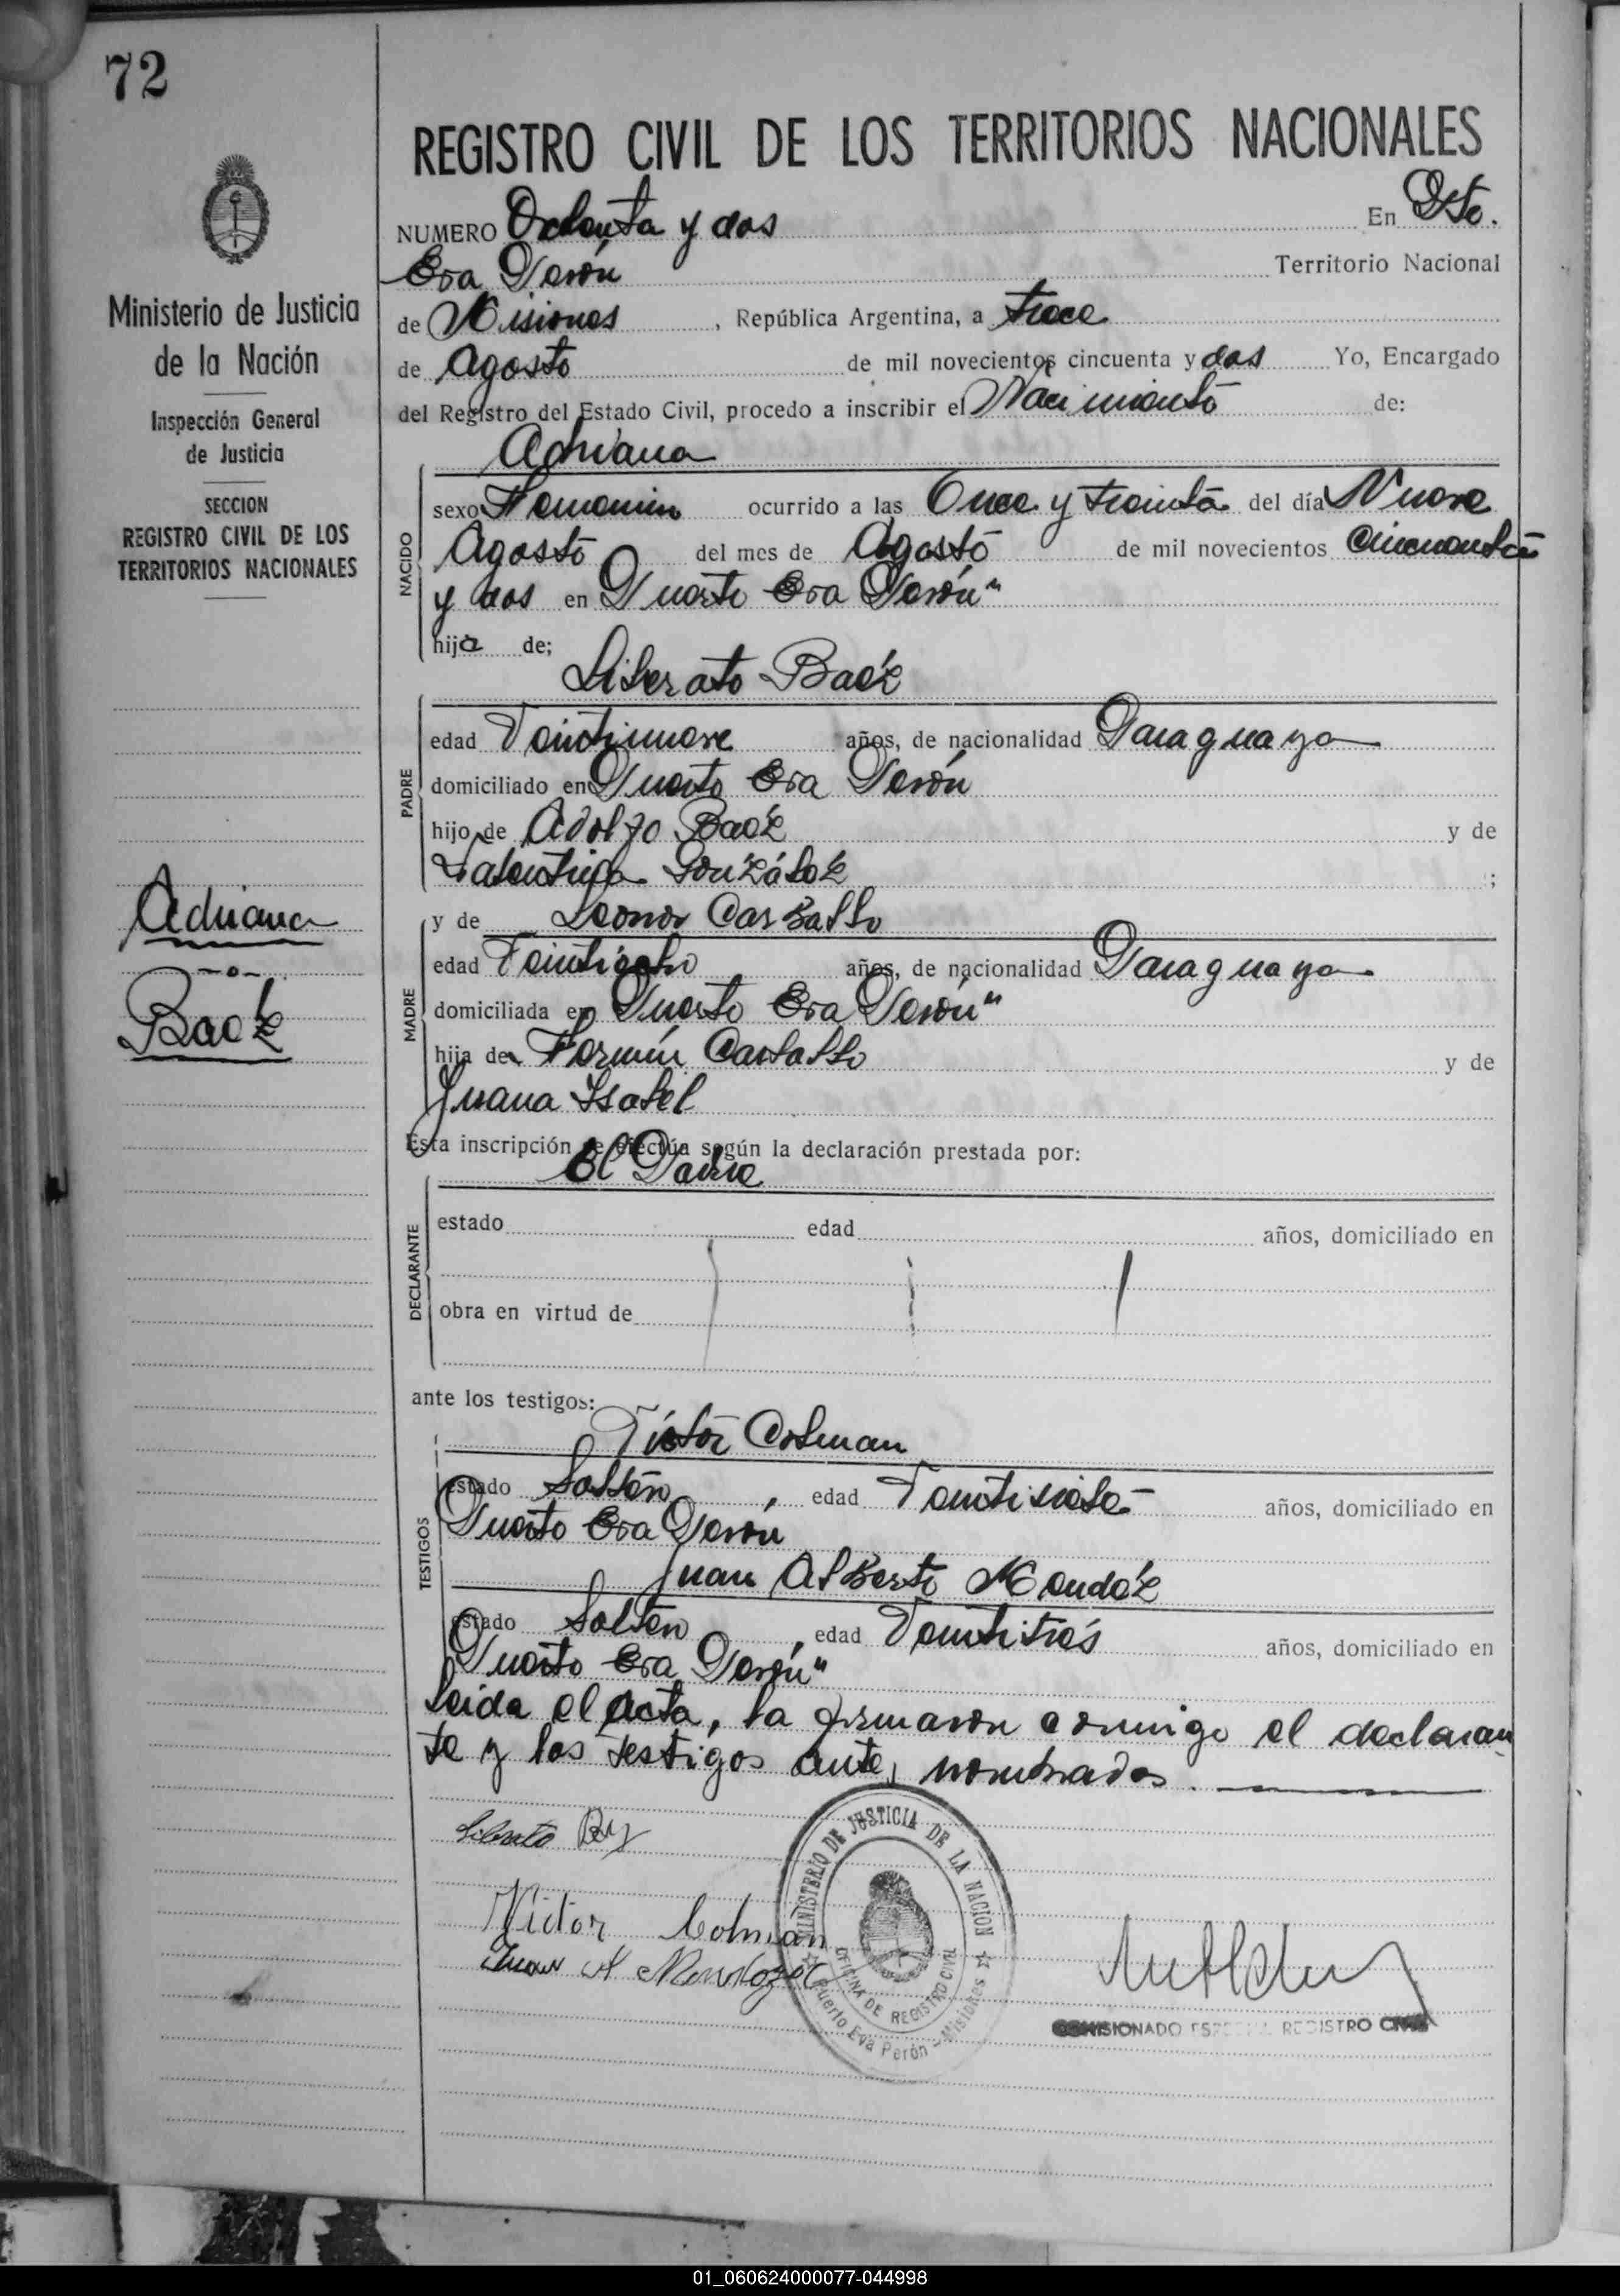 72
REGISTRO CIVIL DE LOS TERRITORIOS NACIONALES
NUMERO Ochenta y dos En Pto.
Eva Perón Territorio Nacional
de Misiones, República Argentina, a trece
de Agosto de mil novecientos cincuenta y dos Yo, Encargado
del Registro del Estado Civil, procedo a inscribir el Nacimiento de:
Adriana
NACIDO
sexo Femenin ocurrido a las Once y treinta del día Nueve
Agosto del mes de Agosto de mil novecientos Cincuenta
y dos en Puerto Eva Perón"
hija de;
Liberato Baéz
PADRE
edad Veintinueve años, de nacionalidad Paraguaya
domiciliado en Puerto Eva Perón
hijo de Adolfo Baéz y de
Valentina Gonzáléz ;
y de Leonor Carballo
MADRE
edad Veintiocho años, de nacionalidad Paraguaya
domiciliada en Puerto Eva Perón"
hija de Fermín Carballo y de
Juana Isabel
Esta inscripción se efectúa según la declaración prestada por:
El Padre
DECLARANTE
estado edad años, domiciliado en
obra en virtud de
ante los testigos:
Víctor Colman
TESTIGOS
estado Soltero, edad Veintisiete años, domiciliado en
Puerto Eva Perón
Juan Alberto Mendéz
estado Soltero, edad Veintitrés años, domiciliado en
Puerto Eva Perón"
Leída el acta, la firmaron conmigo el declaran
te y los testigos ante, nombrados.
Liberato
Victor Colman
Juan A
MINISTERIO DE JUSTICIA DE LA NACION
OFICINA DE REGISTRO CIVIL
Puerto Eva Perón - Misiones
COMISIONADO ESPECIAL REGISTRO CIVIL
Ministerio de Justicia
de la Nación
Inspección General
de Justicia
SECCION
REGISTRO CIVIL DE LOS
TERRITORIOS NACIONALES
Adriana
-o-
Baéz
01_060624000077-044998